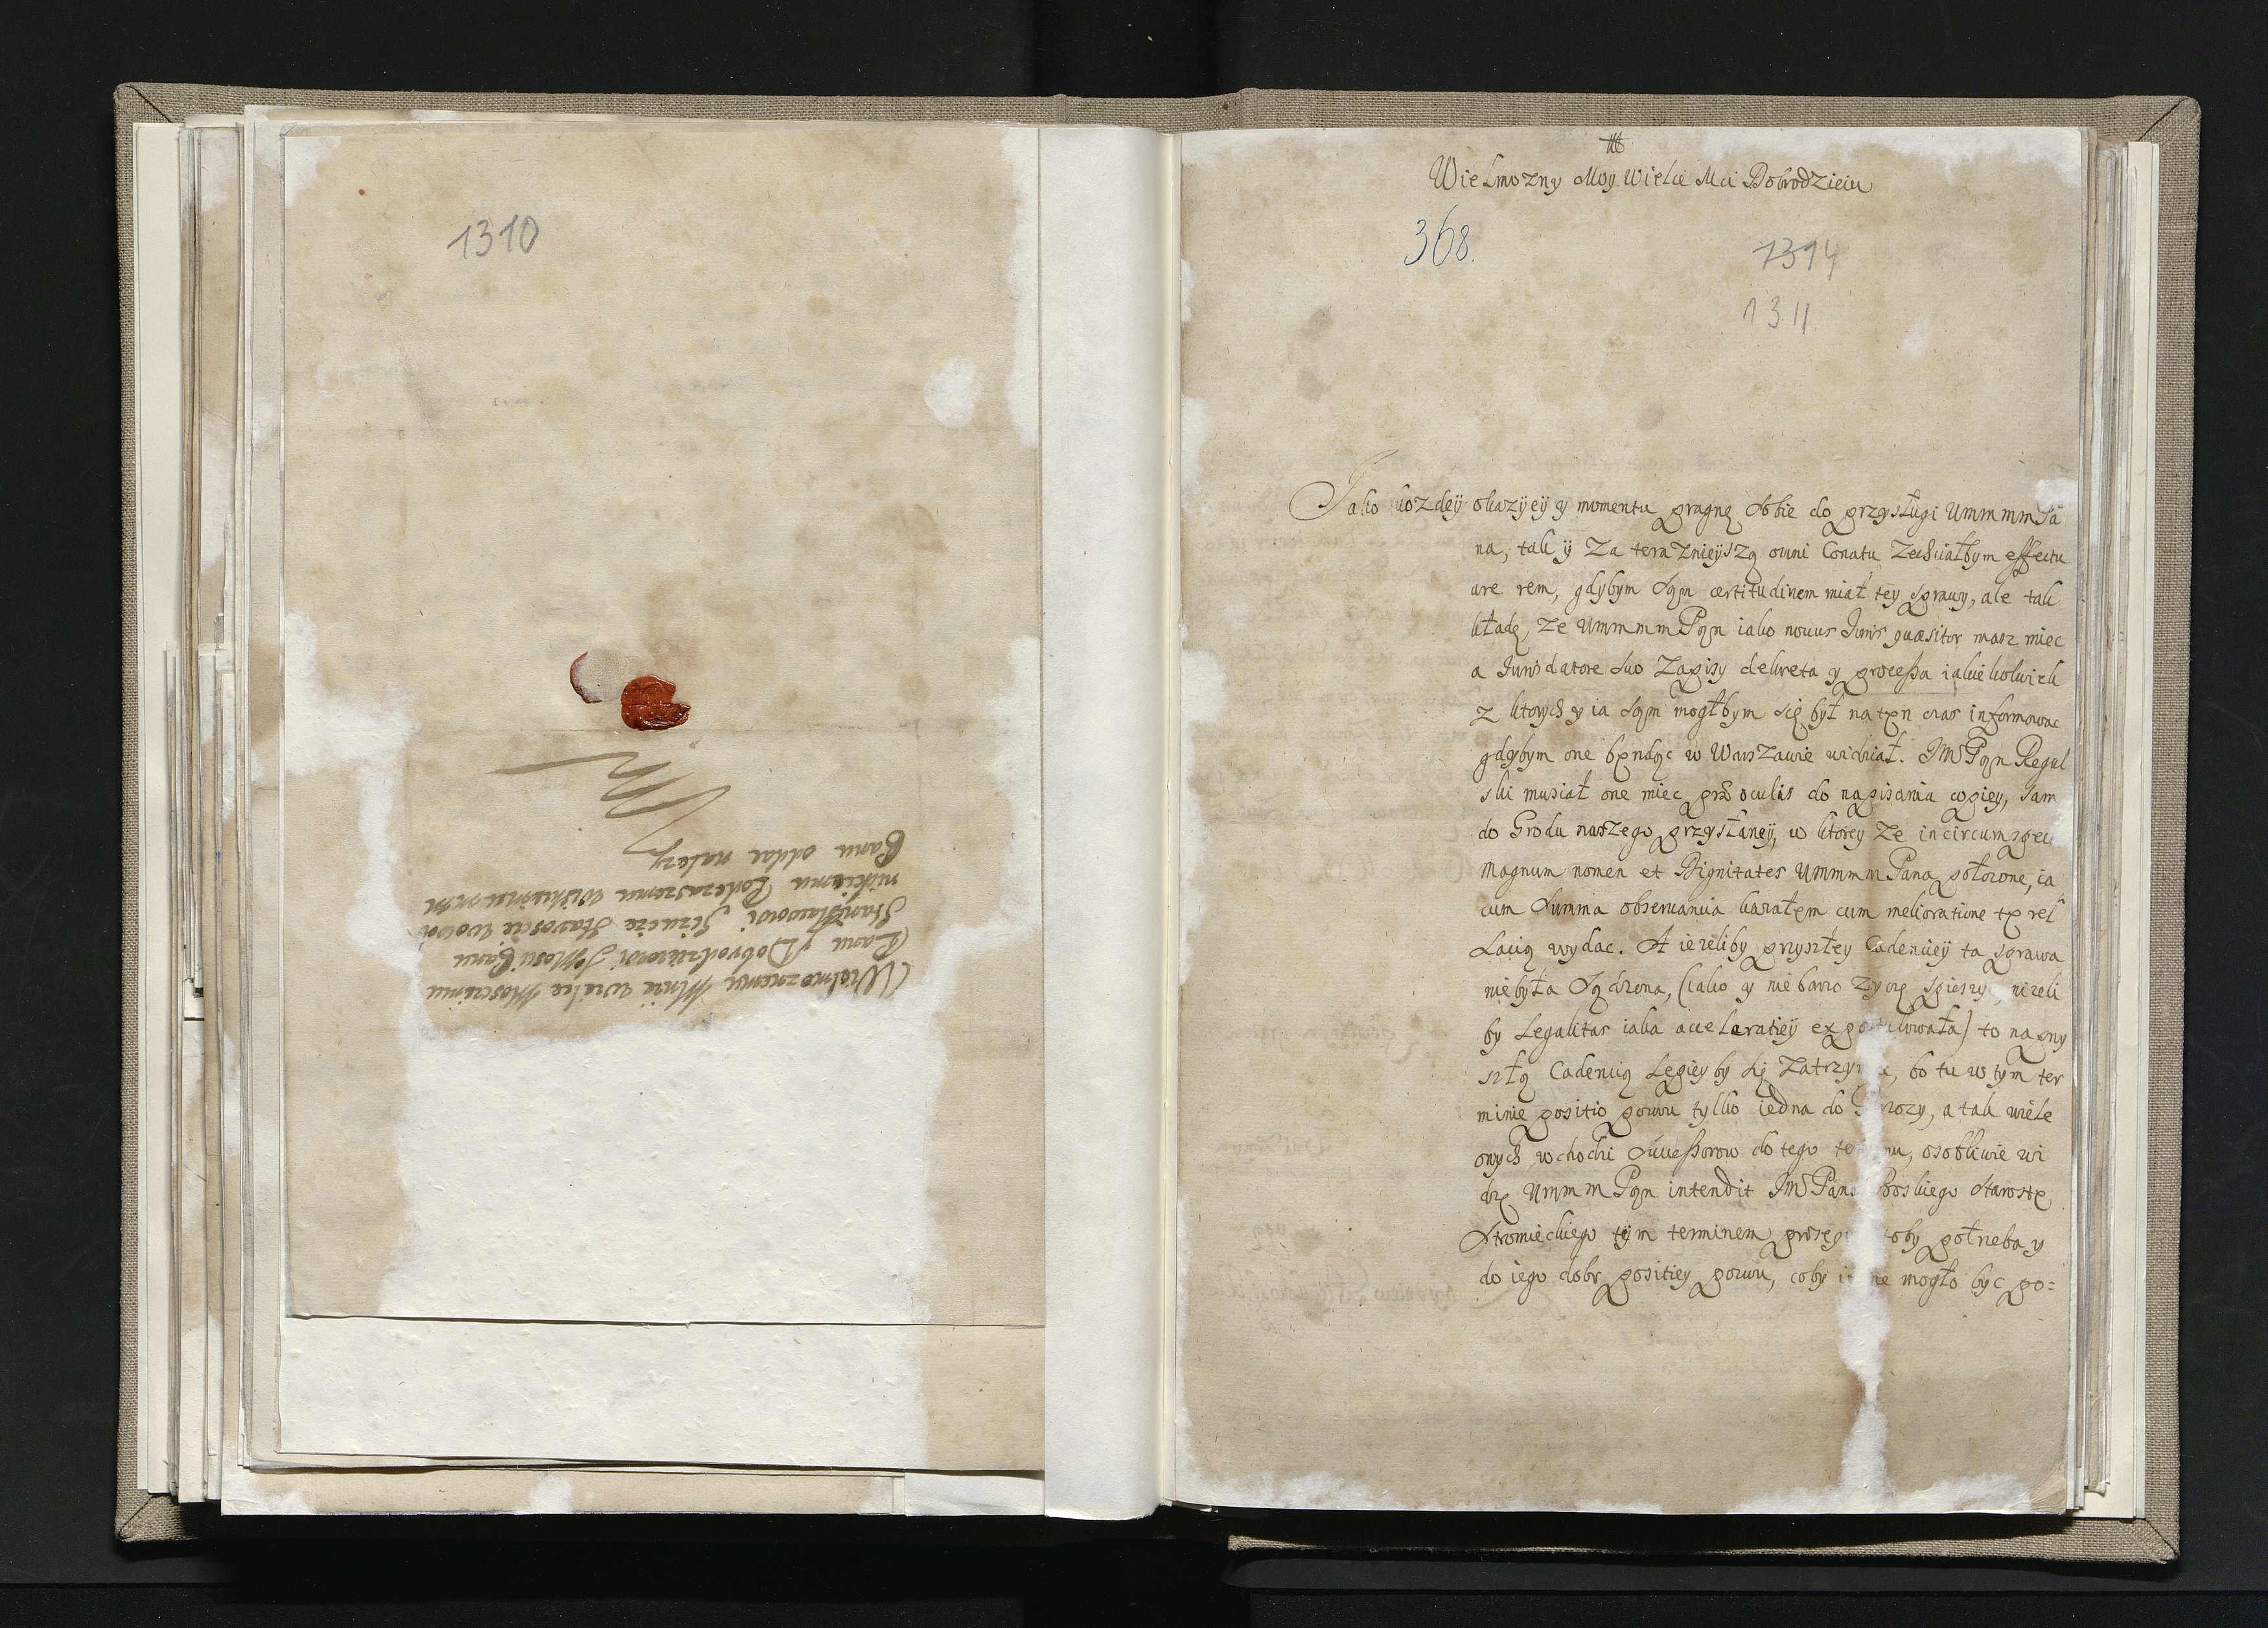 1310
Wielmoznemu Mnie wielce Mosciemu
Panu y Dobrodzieiowi Jmosci Panu
Stanisławowi Sczucie Staroscie wowol
nickiemu Podczaszemu Wiskiemu mm
Panu oddac nalezy
Wielmozny Moy Wielce Mci Dobrodzieiu
368.
1314
1311
Jako kozdey okazyey y momentu pragnę sobie do przysługi Ummmm Pa
na, tak y za teraznieyszą omni Conatu zechciałbym effectu
are rem, gdybym sam certitudinem miał tey sprawy, ale tak
kładę, ze Ummmm Pan iako nouus Juris quæsitor masz miec
a Jurisdatore suo zapisy dekreta y processa iakiekolwiek
z ktorych y ia sam mogłbym się był na ten czas informowac
gdybym one bendąc w Warszawie widział. JMP Pan Regul
ski musiał one miec præ oculis do napisania copiey, sam
do Grodu naszego przysłaney, w ktorey ze incircumspecte
magnum nomen et Dignitates Ummmm Pana położone, ia
cum summa obseruancia kazałem cum melioratione te rel
lacią wydac. A iezeliby przyszłey Cadenciey ta sprawa
niebyła sądzona, (iako y nie barzo zyczę spieszyc, niżeli
by Legalitas iaka acceleratiey expostulowała) to na przy
szłą Cadencią Lepieyby się zatrzym, bo tu w tym ter
minie positio pozwu tylko iedna do, a tak wiele
onych wchodzi successorow do tego ter nu, osobliwie wi
dzę Ummm Pan intendit JMP Pana skiego Starostę
Stromieckiego tym terminem proseq toby potrzeba y
do iego dobr positiey pozwu, coby i ne mogło byc po=